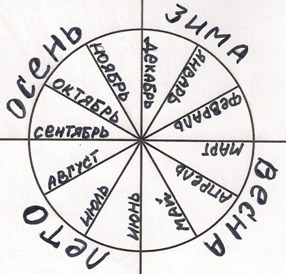 ЗИМА
ДЕКАБРЬ
ЯНВАРЬ
ФЕВРАЛЬ
ВЕСНА
МАРТ
АПРЕЛЬ
МАЙ
ЛЕТО
ИЮНЬ
ИЮЛЬ
АВГУСТ
ОСЕНЬ
СЕНТЯБРЬ
ОКТЯБРЬ
НОЯБРЬ